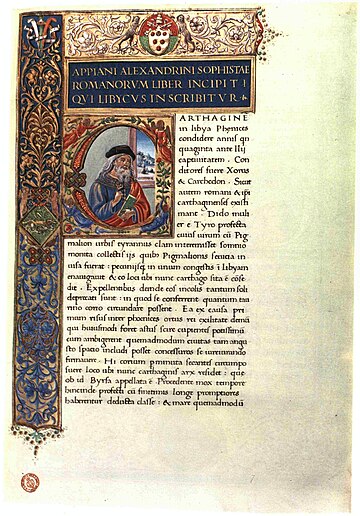 APPIANI ALEXANDRINI SOPHISTAE
ROMANORVM LIBER INCIPIT I
QVI LIBYCVS INSCRIBITVR
CARTHAGINE
in libya Phenices
condidere annis qn
quaginta ante Ilii
captiuitatem. Con
ditores fuere Xorus
& Carchedon. Sicut
autem romani & ipi
carthaginenses existi
mant: Dido muli
er e Tyro profecta
cuius uirum cu Pig
malion urbis tyrannus clam interemisset somnio
monita collectis iis quib Pigmalionis seuicia in
uisa fuerat: pecuniisq in unum congestis i libyam
enauigauit & eo loci ubi nunc carthago sita e cose
dit. Expellentibus deinde eos incolis tantum soli
deprecati sunt: in quod se conferrent quantum tau
rino corio circundare posset. Ea ex causa pri
mum risus inter phoenices ortus rei exilitate
qui huiusmodi foret astus scire cupientes potissimu
cum ambigerent quemadmodum ciuitas tam angu
sto spacio includi posset concessuros se iureiurando
firmauere. Hi corium pminuta secantes circumpo
fuere loco ubi nunc carthaginis arx residet: que
ob id Byrsa appellata e. Procedente mox tempore
hincinde profecti cu finitimis longe promptiores
haberentur deducta classe: & mare quemadmodu